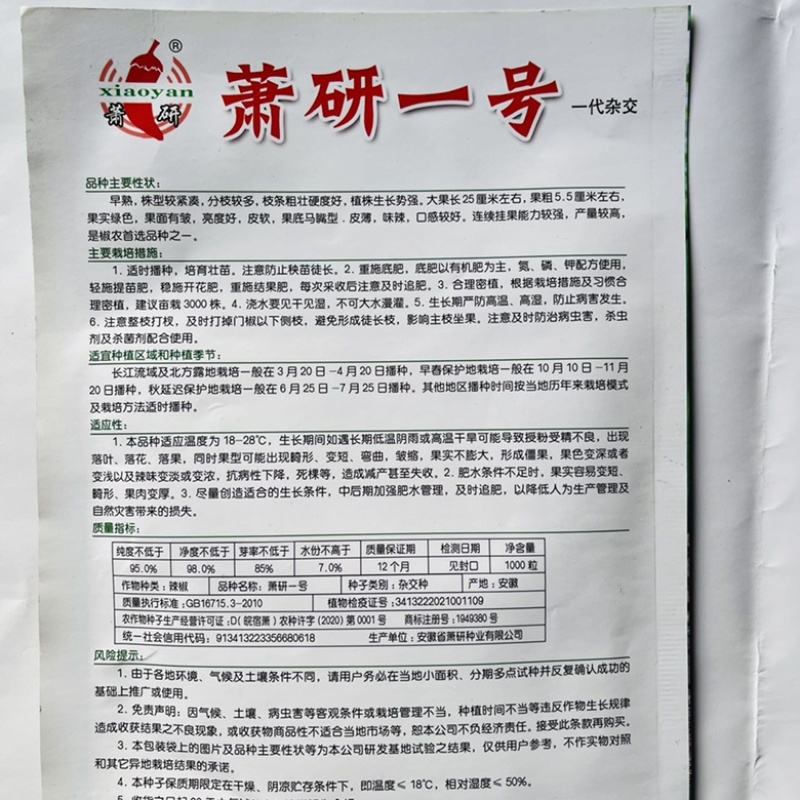 ®
xiaoyan
萧研
萧研一号 一代杂交
品种主要性状:
早熟,株型较紧凑,分枝较多,枝条粗壮硬度好,植株生长势强。大果长25厘米左右,果粗5.5厘米左右,
果实绿色,果面有皱,亮度好,皮软,果底马嘴型.皮薄,味辣,口感较好。连续挂果能力较强,产量较高,
是椒农首选品种之一。
主要栽培措施:
1. 适时播种,培育壮苗。注意防止秧苗徒长。2. 重施底肥,底肥以有机肥为主,氮、磷、钾配方使用,
轻施提苗肥,稳施开花肥,重施结果肥,每次采收后注意及时追肥。3. 合理密植,根据栽培措施及习惯合
理密植,建议亩栽3000株。4. 浇水要见干见湿,不可大水漫灌。5. 生长期严防高温、高湿,防止病害发生。
6. 注意整枝打杈,及时打掉门椒以下侧枝,避免形成徒长枝,影响主枝坐果。注意及时防治病虫害,杀虫
剂及杀菌剂配合使用。
适宜种植区域和种植季节:
长江流域及北方露地栽培一般在3月20日-4月20日播种,早春保护地栽培一般在10月10日-11月
20日播种,秋延迟保护地栽培一般在6月25日-7月25日播种。其他地区播种时间按当地历年来栽培模式
及栽培方法适时播种。
适应性:
1. 本品种适应温度为18-28℃,生长期间如遇长期低温阴雨或高温干旱可能导致授粉受精不良,出现
落叶、落花、落果,同时果型可能出现畸形、变短、弯曲,皱缩,果实不膨大,形成僵果,果色变深或者
变浅以及辣味变淡或变浓,抗病性下降,死棵等,造成减产甚至失收。2. 肥水条件不足时,果实容易变短、
畸形、果肉变厚。3. 尽量创造适合的生长条件,中后期加强肥水管理,及时追肥,以降低人为生产管理及
自然灾害带来的损失。
质量指标:
纯度不低于 净度不低于 芽率不低于 水份不高于 质量保证期 检测日期 净含量
95.0% 98.0% 85% 7.0% 12个月 见封口 1000粒
作物种类:辣椒 品种名称:萧研一号 种子类别:杂交种 产地:安徽
质量执行标准:GB16715.3-2010 植物检疫证号:3413222021001109
农作物种子生产经营许可证:D(皖宿萧)农种许字(2020)第0001号 商标注册号:1949380号
统一社会信用代码:913413223356680618 生产单位:安徽省萧研种业有限公司
风险提示:
1. 由于各地环境、气候及土壤条件不同,请用户务必在当地小面积、分期多点试种并反复确认成功的
基础上推广或使用。
2. 免责声明:因气候、土壤、病虫害等客观条件或栽培管理不当,种植时间不当等违反作物生长规律
造成收获结果之不良现象,或收获物商品性不适合当地市场等,恕本公司不负经济责任。接受此条款再购买。
3. 本包装袋上的图片及品种主要性状等为本公司研发基地试验之结果,仅供用户参考,不作实物对照
和其它异地栽培结果的承诺。
4. 本种子保质期限定在干燥、阴凉贮存条件下,即温度≤18℃,相对湿度≤50%。